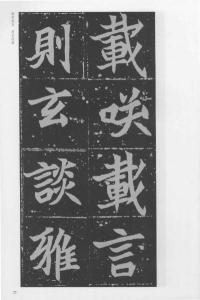 載咲載言
則玄談雅